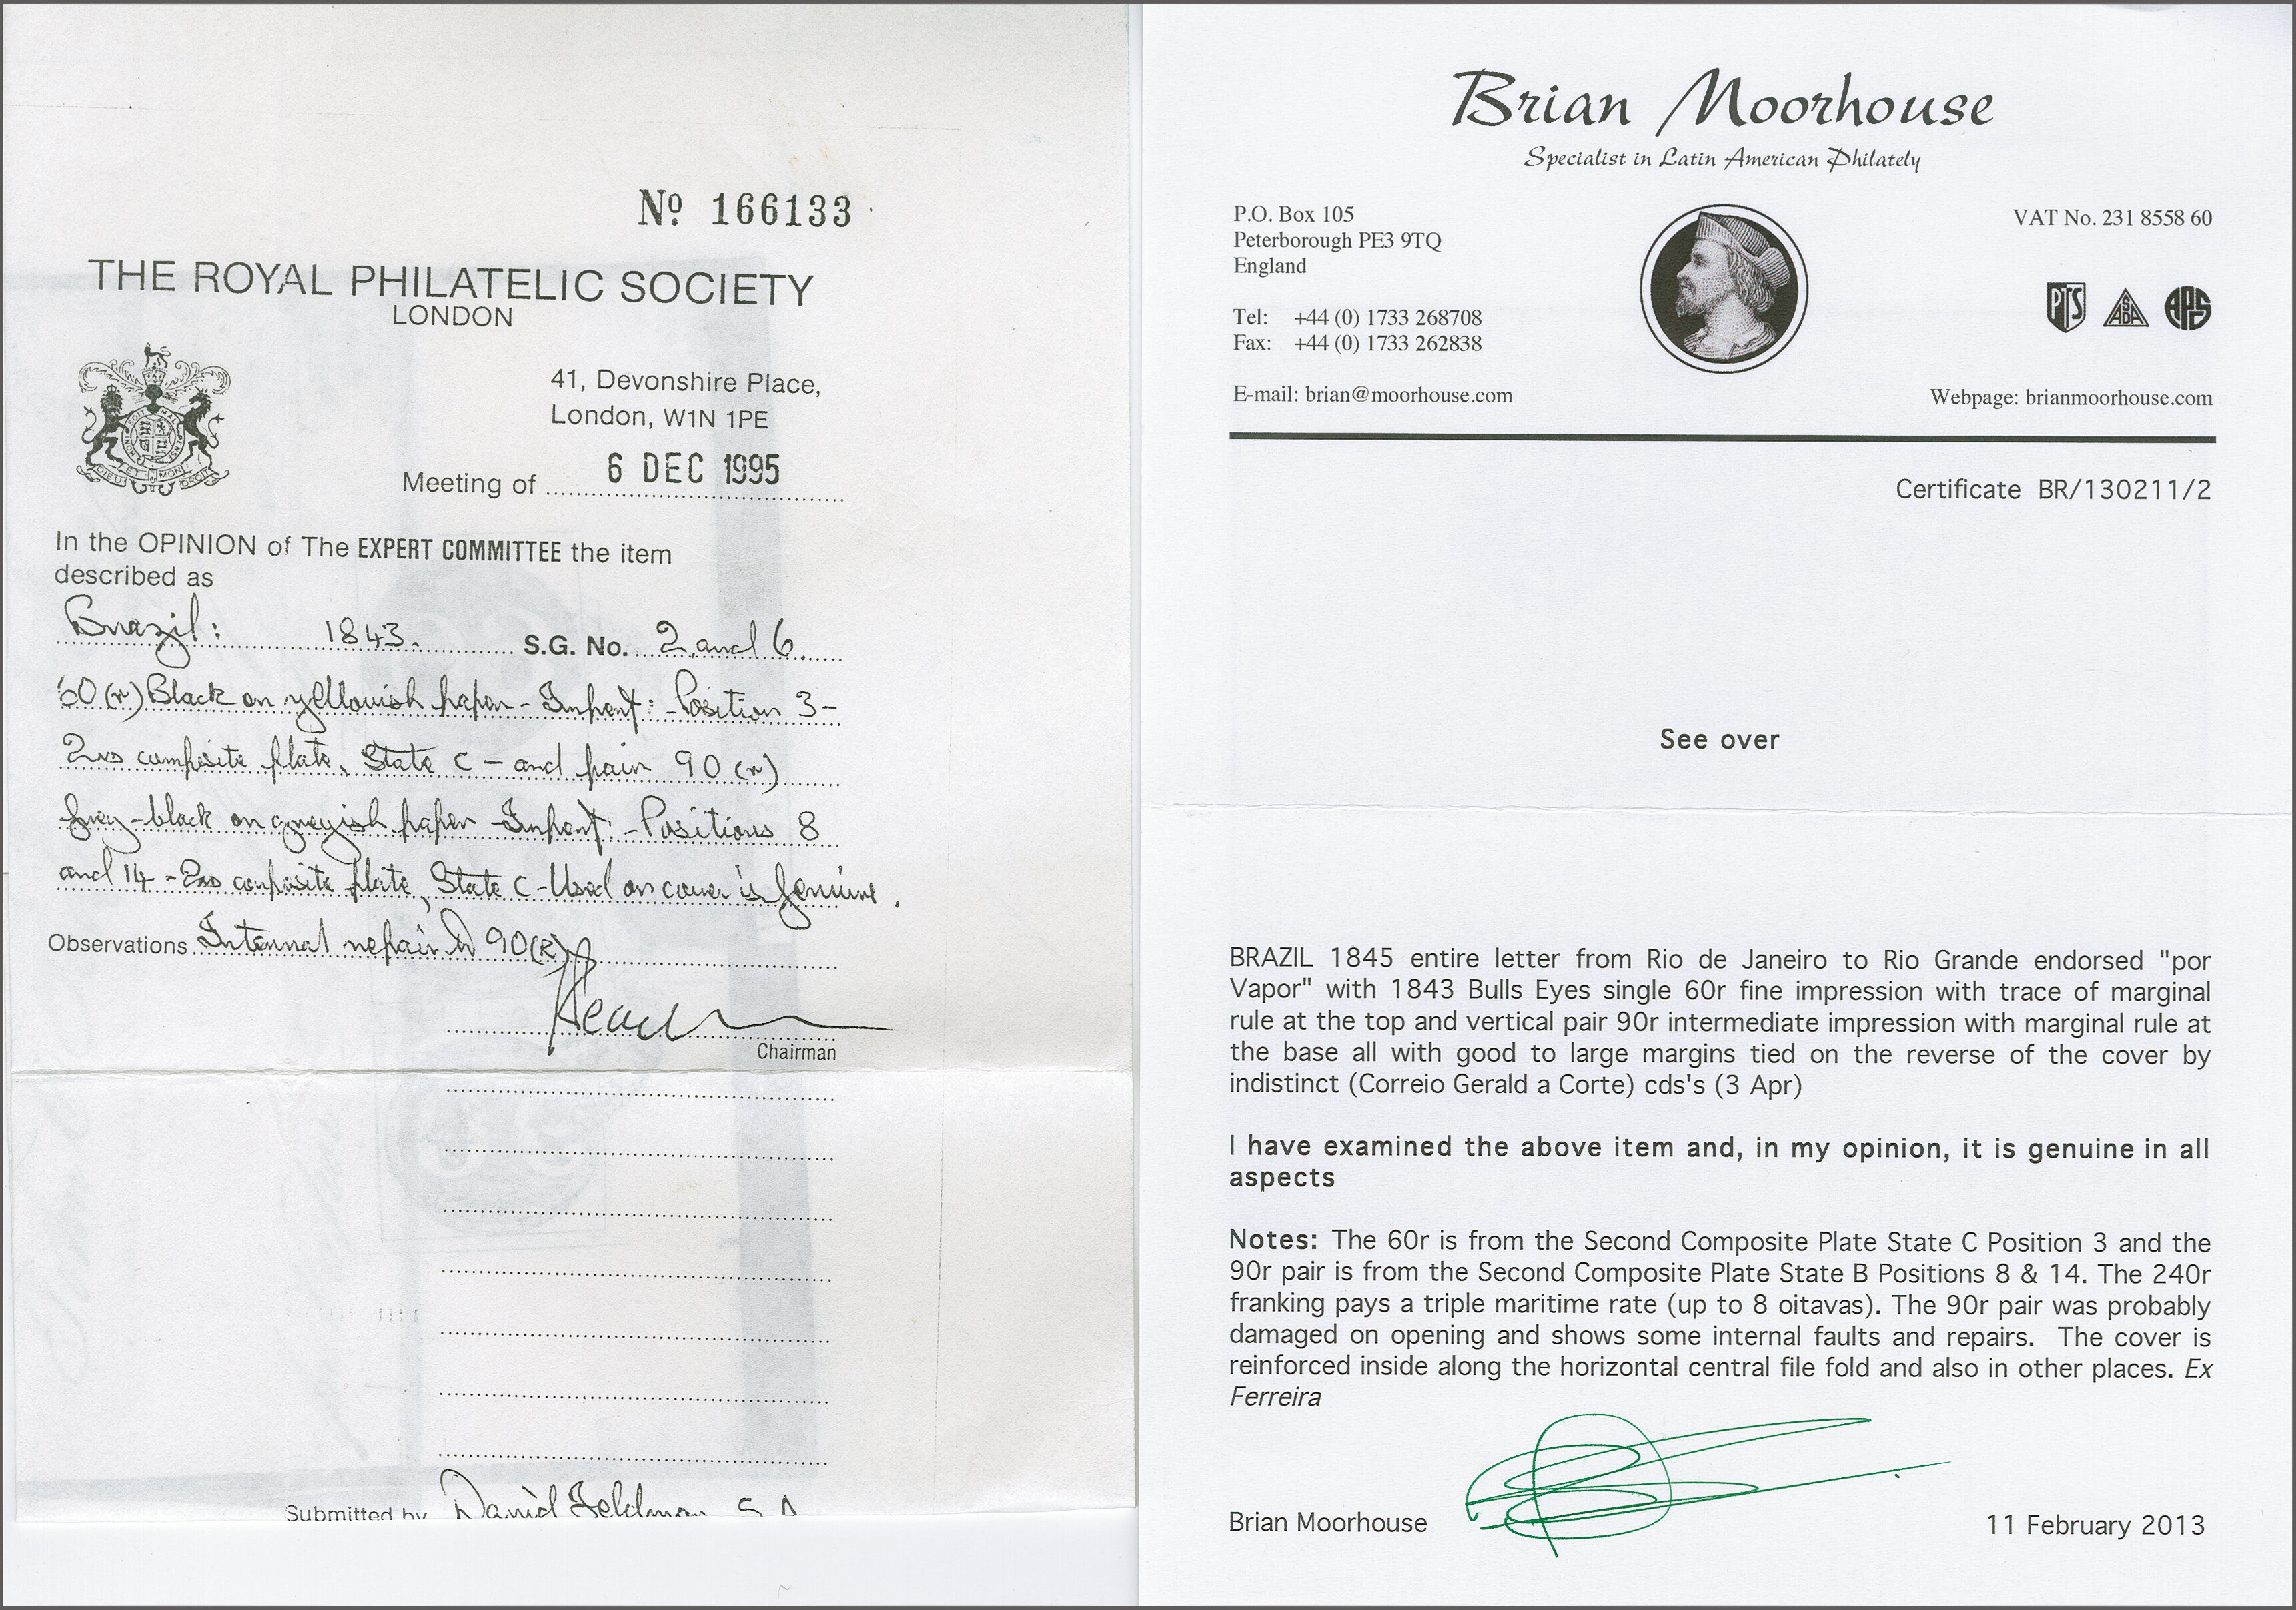 Nº 166133
THE ROYAL PHILATELIC SOCIETY
LONDON
41, Devonshire Place,
London, W1N 1PE
Meeting of 6 DEC 1995
In the OPINION of The EXPERT COMMITTEE the item
described as
Brazil: 1843. S.G. No. 2 and 6.
60 (r) Black on yellowish paper - Imperf: - Position 3 -
2nd composite plate, State C - and pair 90 (r)
Grey-black on greyish paper - Imperf: - Positions 8
and 14 - 2nd composite plate, State C - Used on cover is genuine.
Observations Internal repair to 90(R)
Chairman
Submitted by David Feldman S A
Brian Moorhouse
Specialist in Latin American Philately
P.O. Box 105
Peterborough PE3 9TQ
England
Tel: +44 (0) 1733 268708
Fax: +44 (0) 1733 262838
E-mail: brian@moorhouse.com
VAT No. 231 8558 60
PTS ASDA APS
Webpage: brianmoorhouse.com
Certificate BR/130211/2
See over
BRAZIL 1845 entire letter from Rio de Janeiro to Rio Grande endorsed "por
Vapor" with 1843 Bulls Eyes single 60r fine impression with trace of marginal
rule at the top and vertical pair 90r intermediate impression with marginal rule at
the base all with good to large margins tied on the reverse of the cover by
indistinct (Correio Gerald a Corte) cds's (3 Apr)
I have examined the above item and, in my opinion, it is genuine in all
aspects
Notes: The 60r is from the Second Composite Plate State C Position 3 and the
90r pair is from the Second Composite Plate State B Positions 8 & 14. The 240r
franking pays a triple maritime rate (up to 8 oitavas). The 90r pair was probably
damaged on opening and shows some internal faults and repairs. The cover is
reinforced inside along the horizontal central file fold and also in other places. Ex
Ferreira
Brian Moorhouse
11 February 2013